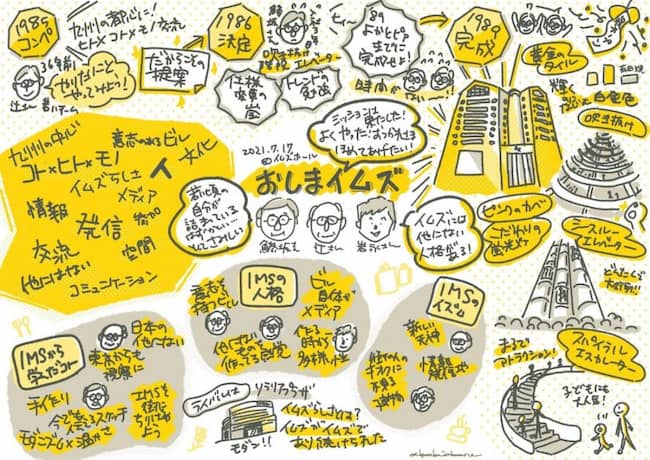 1985
コンペ
九州の都心に!
ヒト×コト×モノ/交流
1986
決定
'89
1989
完成
黄金の
タイル
36年前!
やりたいこと
やってみよう!
辻さん
だからこその
提案
吹き抜け
エレベーター
仕様
変更の
嵐
トレンドの
時間が
ないー!!
白金色
吹き抜け
ミッションは
果たした!
よくやった!おつかれさま
ほめてあげたい!
2021.7.17
@イムズホール
おしまイムズ
九州の中心
意志のあるビル
コト×ヒト×モノ
人
文化
イムズらしさ
メディア
情報
発信
参加
交流
空間
他にはない
コミュニケーション
若い頃の
自分が
詰まっている
はずかしい
さみしい
辻さん
イムズには
他にない
人格がある!
ピンクのカベ
こだわりの
蛍光灯
シースルー
エレベーター
どしゃぶりで
スパイラル
エスカレーター
まるで
アトラクション!
子どもにも
大人気!
IMSの
人格
意志を
持つビル
ビル
自体が
メディア
他にない
ものを
作ってる感覚
作る
時から
多様性
IMSの
イズム
新しい
天神
情報
発信地
IMSから
学んだコト
日本の
他になり
東京からも
視察に
手作り
今でも
モダニズム×温かさ
IMSを
街に
ちりばめ
よう
ライバルは
ソラリアプラザ
モダン!!
イムズらしさとは?
イムズがイムズで
あり続けられた